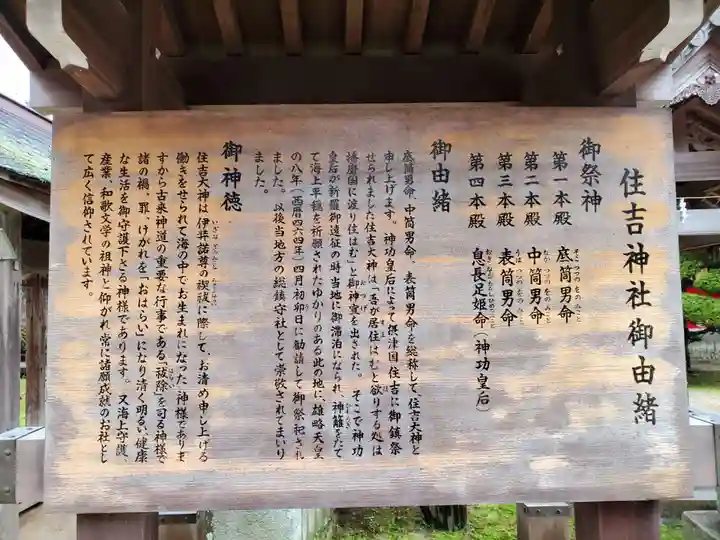 住吉神社御由緒
御祭神
第一本殿　底筒男命
そこつつをのみこと
第二本殿　中筒男命
なかつつをのみこと
第三本殿　表筒男命
うはつつをのみこと
第四本殿　息長足姫命（神功皇后）
おきながたらしひめのみこと
御由緒
底筒男命、中筒男命、表筒男命を総称して、住吉大神と
申し上げます。神功皇后によって摂津国住吉に御鎮祭
せられました住吉大神は「吾が居住はむと欲りする処は
播磨国に渡り住はむ」と御神宣を出された。そこで神功
皇后が新羅御遠征の時当地に御滞泊になられ、神籬をたて
て海上平穏を祈願されたゆかりのある此の地に、雄略天皇
の八年（西暦四六四年）四月初卯日に勧請して御祭祀され
ました。以後当地方の総鎮守社として崇敬されてまいり
ました。
御神徳
住吉大神は伊弉諾尊の禊祓に際して、お清め申し上げる
働きをせられて海の中でお生まれになった神様でありま
すから古来神道の重要な行事である「祓除」を司る神様で
諸の禍、罪、けがれを「おはらい」になり清く明るい健康
な生活を御守護下さる神様であります。又海上守護、
産業、和歌文学の祖神と仰がれ常に諸願成就のお社とし
て広く信仰されています。